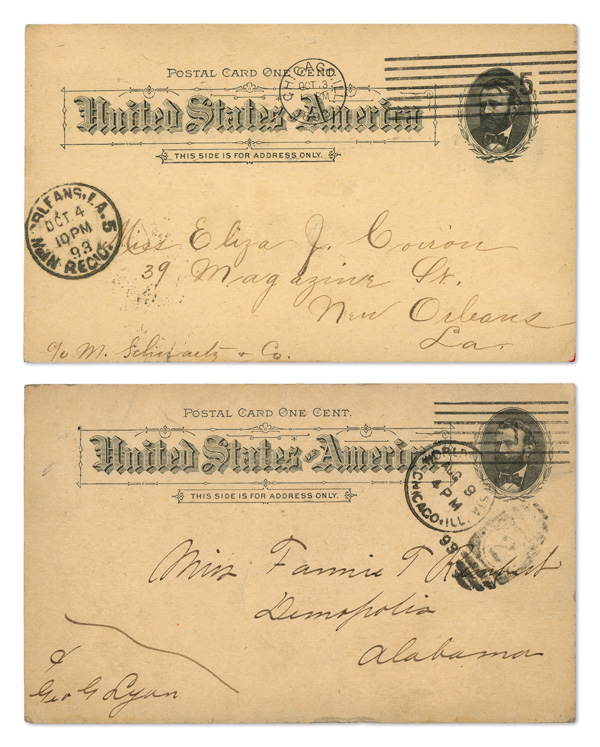 POSTAL CARD ONE CENT.
United States of America
THIS SIDE IS FOR ADDRESS ONLY.
CHICAGO, ILL.
OCT. 3
PM
5
ORLEANS, LA. 5
OCT. 4
10 PM
93
REC'D.
Miss Eliza J.
39 Magazine St.
New Orleans
La.
c/o M. Schwartz & Co.
POSTAL CARD ONE CENT.
United States of America
THIS SIDE IS FOR ADDRESS ONLY.
AUG 9
4 PM
CHICAGO, ILL.
2
Miss Fannie T
Demopolis
Alabama
Geo G Lyon